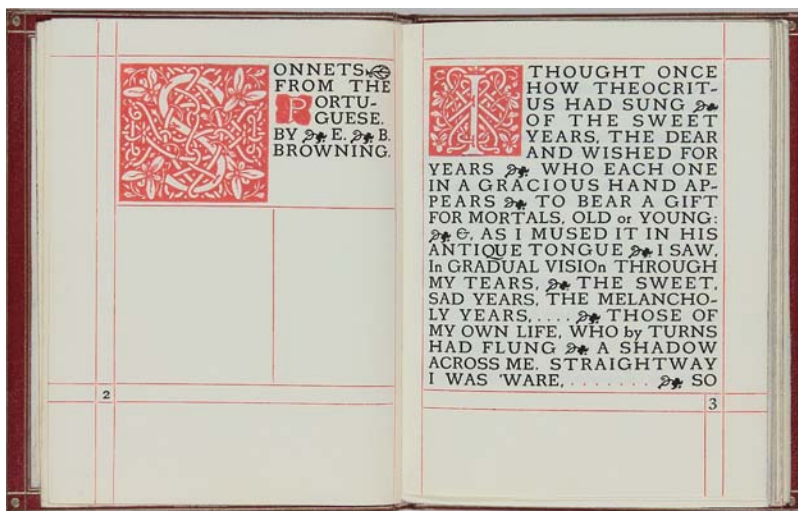 SONNETS
FROM THE
PORTU-
GUESE.
BY E. B.
BROWNING.
2
I THOUGHT ONCE
HOW THEOCRIT-
US HAD SUNG
OF THE SWEET
YEARS, THE DEAR
AND WISHED FOR
YEARS WHO EACH ONE
IN A GRACIOUS HAND AP-
PEARS TO BEAR A GIFT
FOR MORTALS, OLD or YOUNG:
&, AS I MUSED IT IN HIS
ANTIQUE TONGUE I SAW,
In GRADUAL VISIOn THROUGH
MY TEARS, THE SWEET,
SAD YEARS, THE MELANCHO-
LY YEARS,.... THOSE OF
MY OWN LIFE, WHO by TURNS
HAD FLUNG A SHADOW
ACROSS ME. STRAIGHTWAY
I WAS 'WARE, ........ SO
3